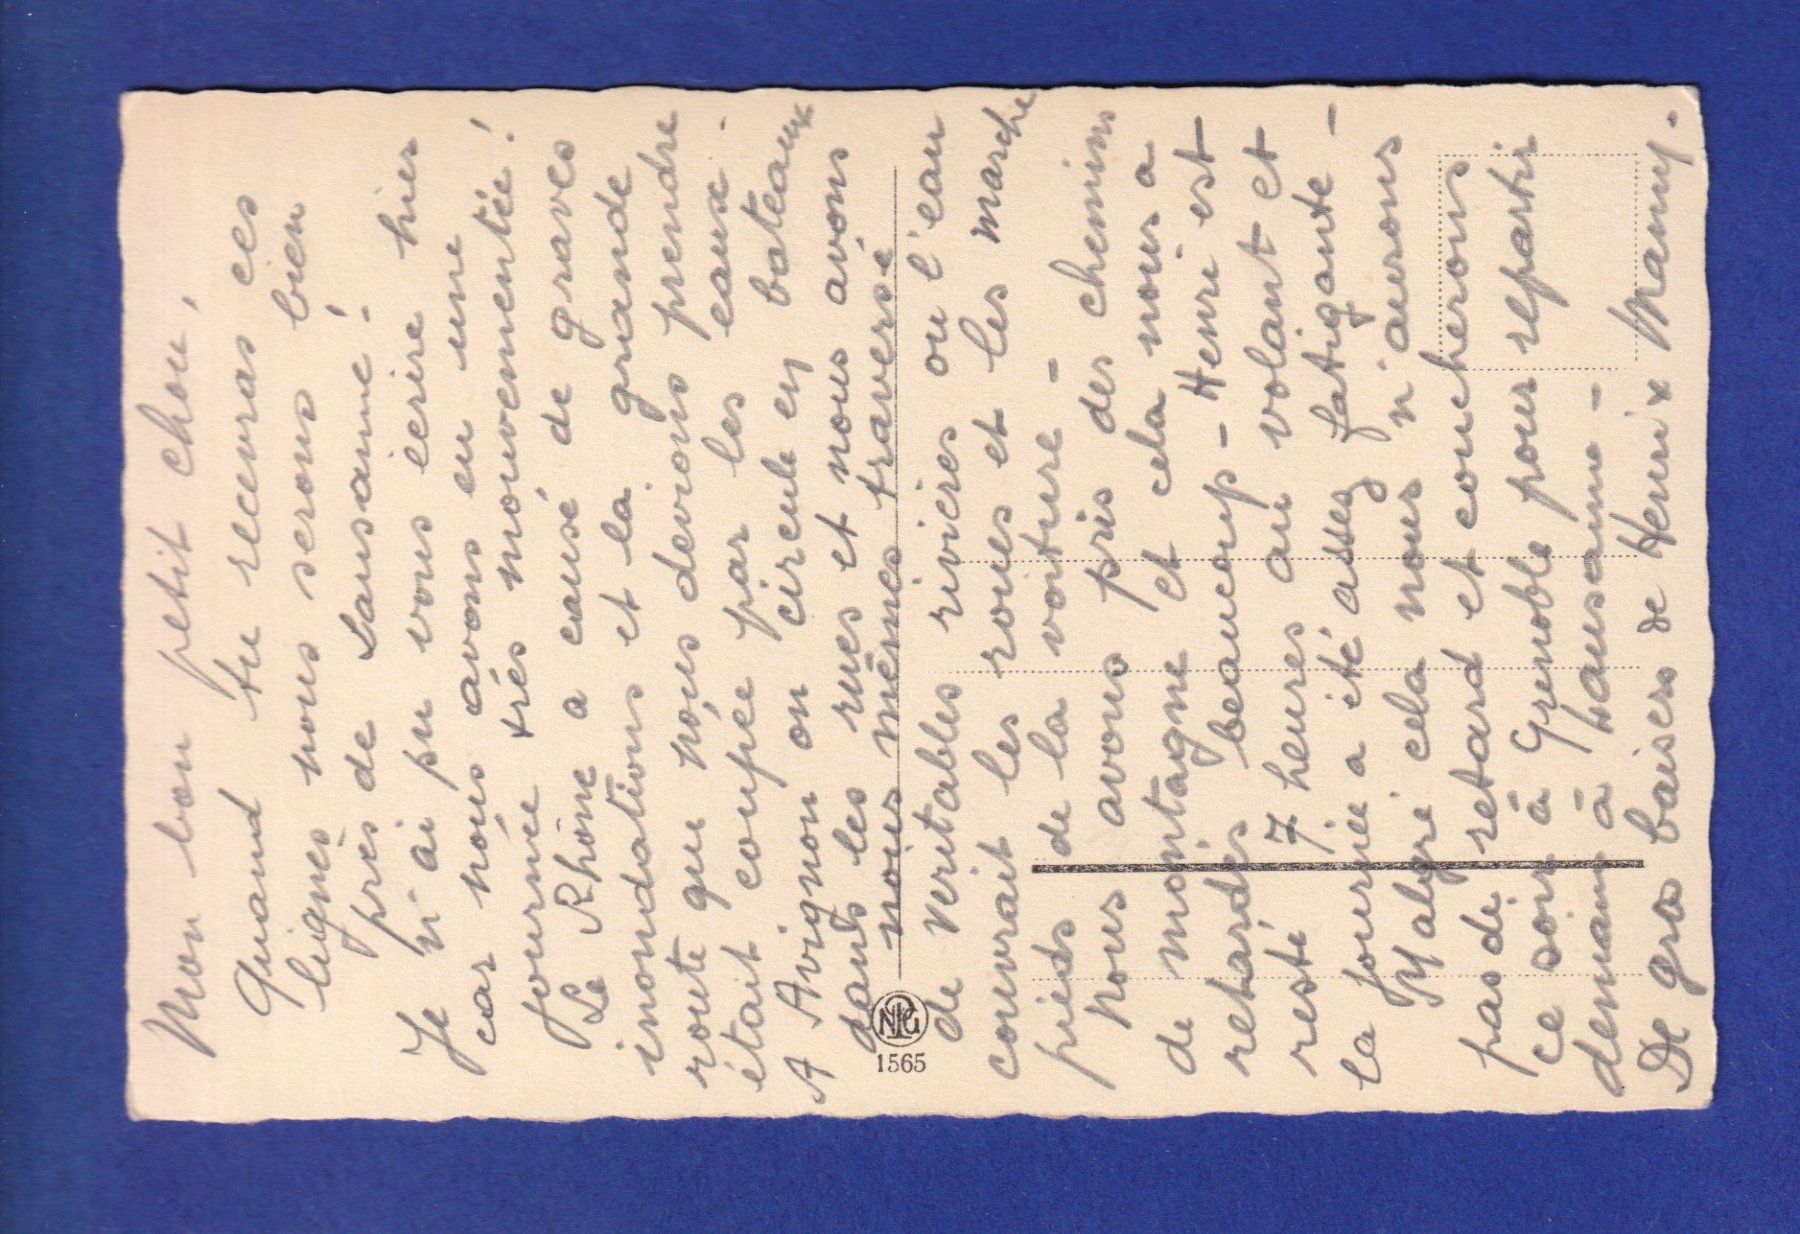 Mon bon petit chou,
Quand tu recevras ces
lignes nous serons bien
près de Lausanne !
Je n'ai pu vous écrire hier
car nous avons eu une
journée très mouvementée !
Le Rhône a causé de graves
inondations et la grande
route que nous devions prendre
était coupée par les eaux.
A Avignon on circule en bateaux
dans les rues et nous avons
nous mêmes traversé
de veritables rivières ou l'eau
couvrait les roues et les marche
pieds de la voiture -
Nous avons pris des chemins
de montagne et cela nous a
retardés beaucoup - Henri est
resté 7 heures au volant et
la journée a été assez fatigante -
Malgré cela nous n'aurons
pas de retard et coucherons
ce soir à Grenoble pour repartir
demain à Lausanne -
De gros baisers de Henri & Mamy.
NPG
1565